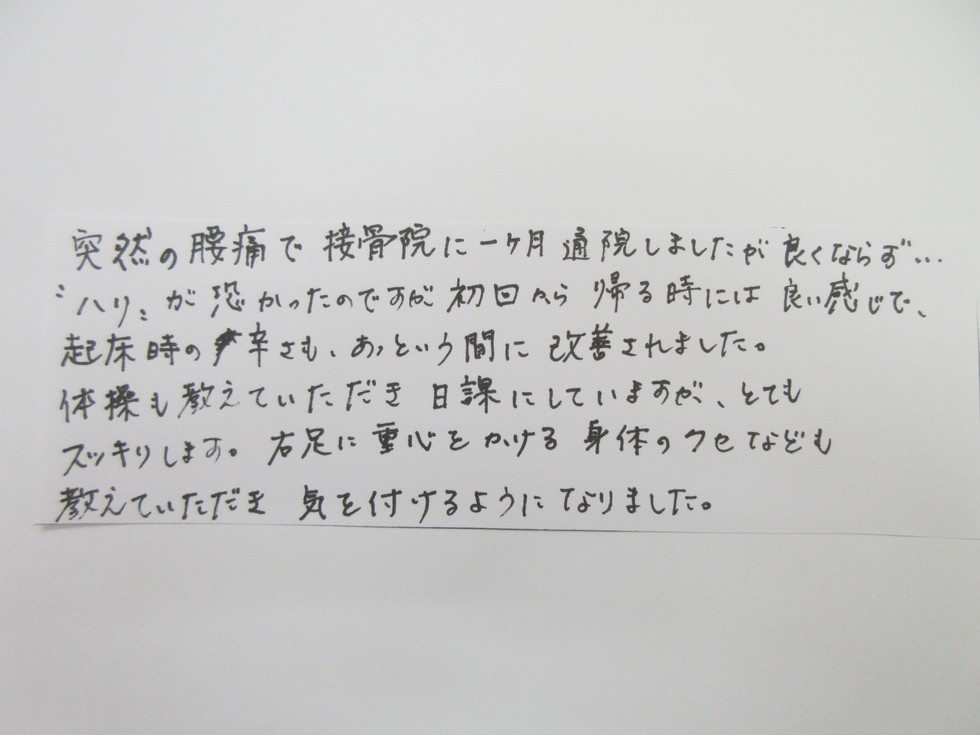 突然の腰痛で 接骨院に一ヶ月通院しましたが良くならず…
〝ハリ〟が恐かったのですが初回から帰る時には良い感じで、
起床時の辛さも、あっという間に改善されました。
体操も教えていただき日課にしていますが、とても
スッキリします。右足に重心をかける身体のクセなども
教えていただき 気を付けるようになりました。